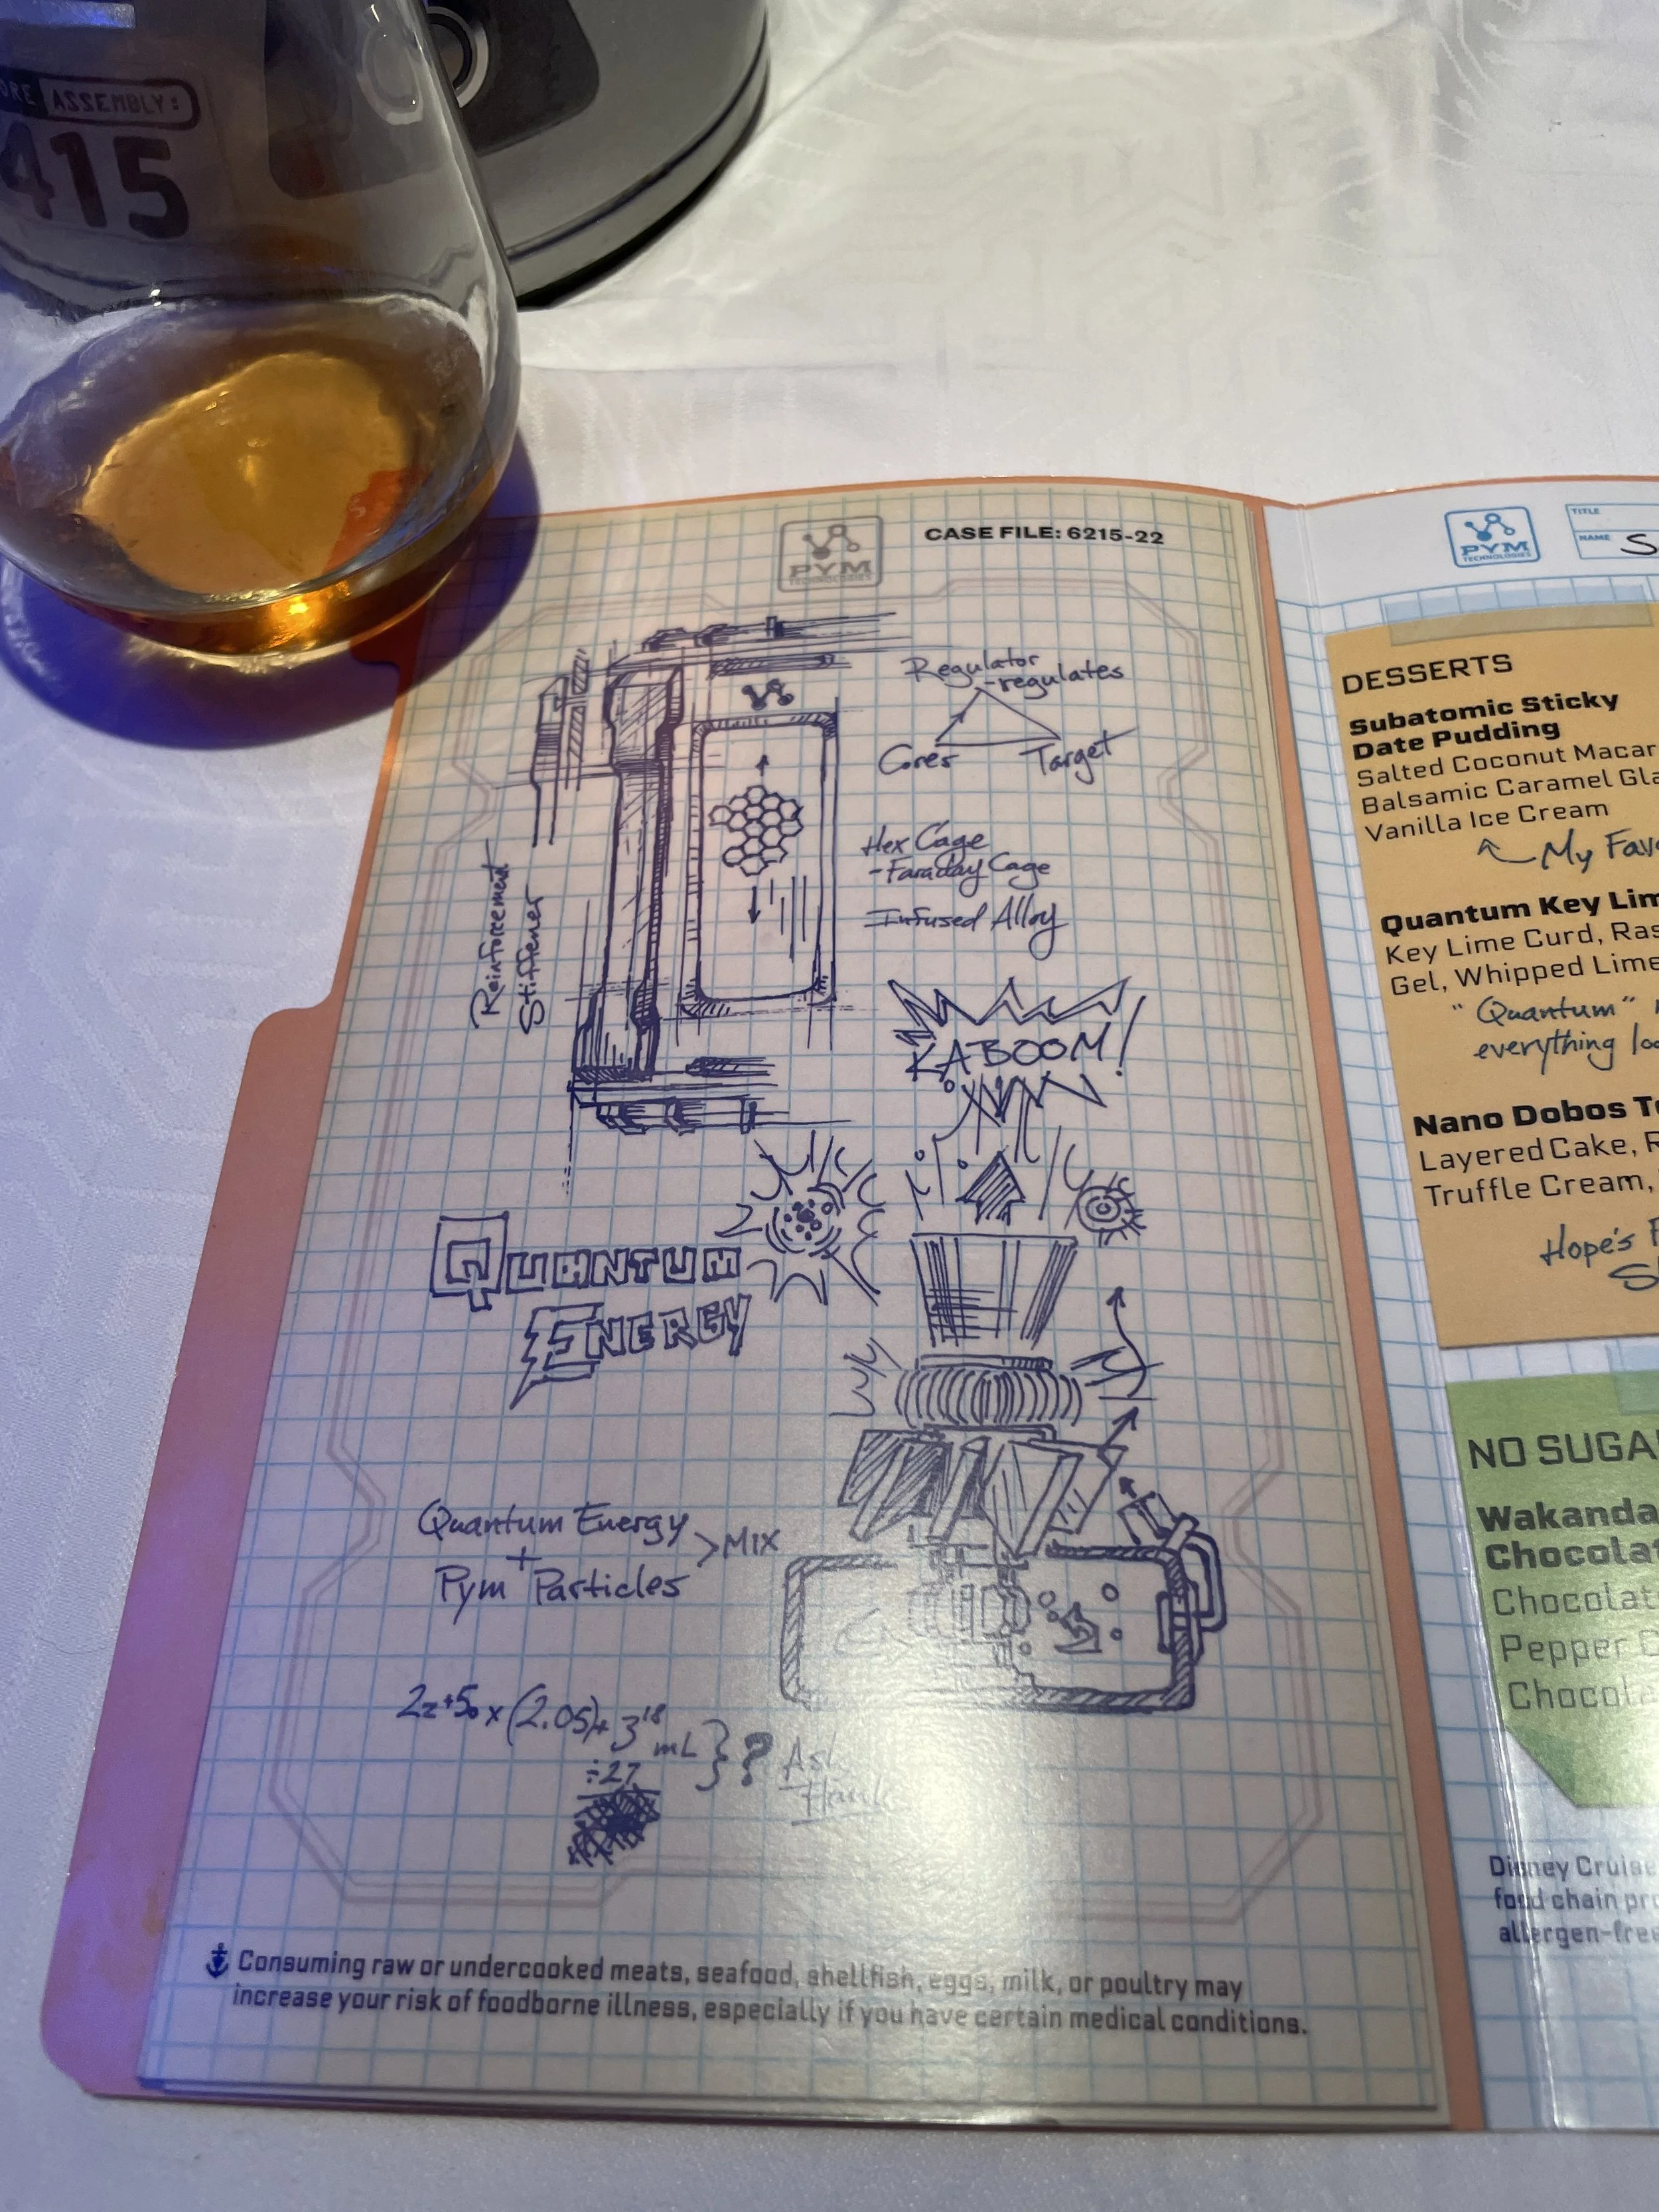 ASSEMBLY:
415
PYM
TECHNOLOGIES
CASE FILE: 6215-22
Regulator
-regulates
Cores
Target
Hex Cage
-Faraday Cage
Infused Alloy
Reinforcement
Stiffener
KABOOM!
QUANTUM
ENERGY
Quantum Energy
+
Pym Particles
>MIX
2z+5₀ x (2.05)+ 3¹⁸ mL
÷27
} ? Ask
Hank
Consuming raw or undercooked meats, seafood, shellfish, eggs, milk, or poultry may
increase your risk of foodborne illness, especially if you have certain medical conditions.
PYM
TECHNOLOGIES
TITLE
NAME
DESSERTS
Subatomic Sticky
Date Pudding
Salted Coconut
Balsamic Caramel
Vanilla Ice Cream
My
Quantum Key
Key Lime Curd,
Gel, Whipped
"Quantum"
everything
Nano Dobos
Layered Cake,
Truffle Cream,
Hope's
NO
Pepper
Disney
food chain